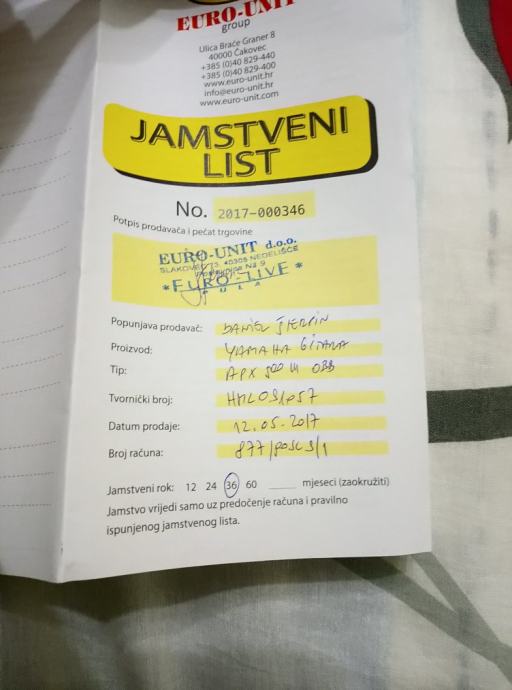 EURO-UNIT
group
Ulica Braće Graner 8
40000 Čakovec
+385 (0)40 829-440
+385 (0)40 829-400
www.euro-unit.hr
info@euro-unit.hr
www.euro-unit.com
JAMSTVENI
LIST
No. 2017-000346
Potpis prodavača i pečat trgovine
EURO-UNIT d.o.o.
40305 NEDELIŠĆE
*EURO-LIVE*
PULA
Popunjava prodavač: DANIEL
Proizvod: YAMAHA GITARA
Tip: APX 500 III OBB
Tvornički broj:
Datum prodaje: 12.05.2017
Broj računa: 877/POSL3/1
Jamstveni rok: 12 24 36 60 ____ mjeseci (zaokružiti)
Jamstvo vrijedi samo uz predočenje računa i pravilno
ispunjenog jamstvenog lista.